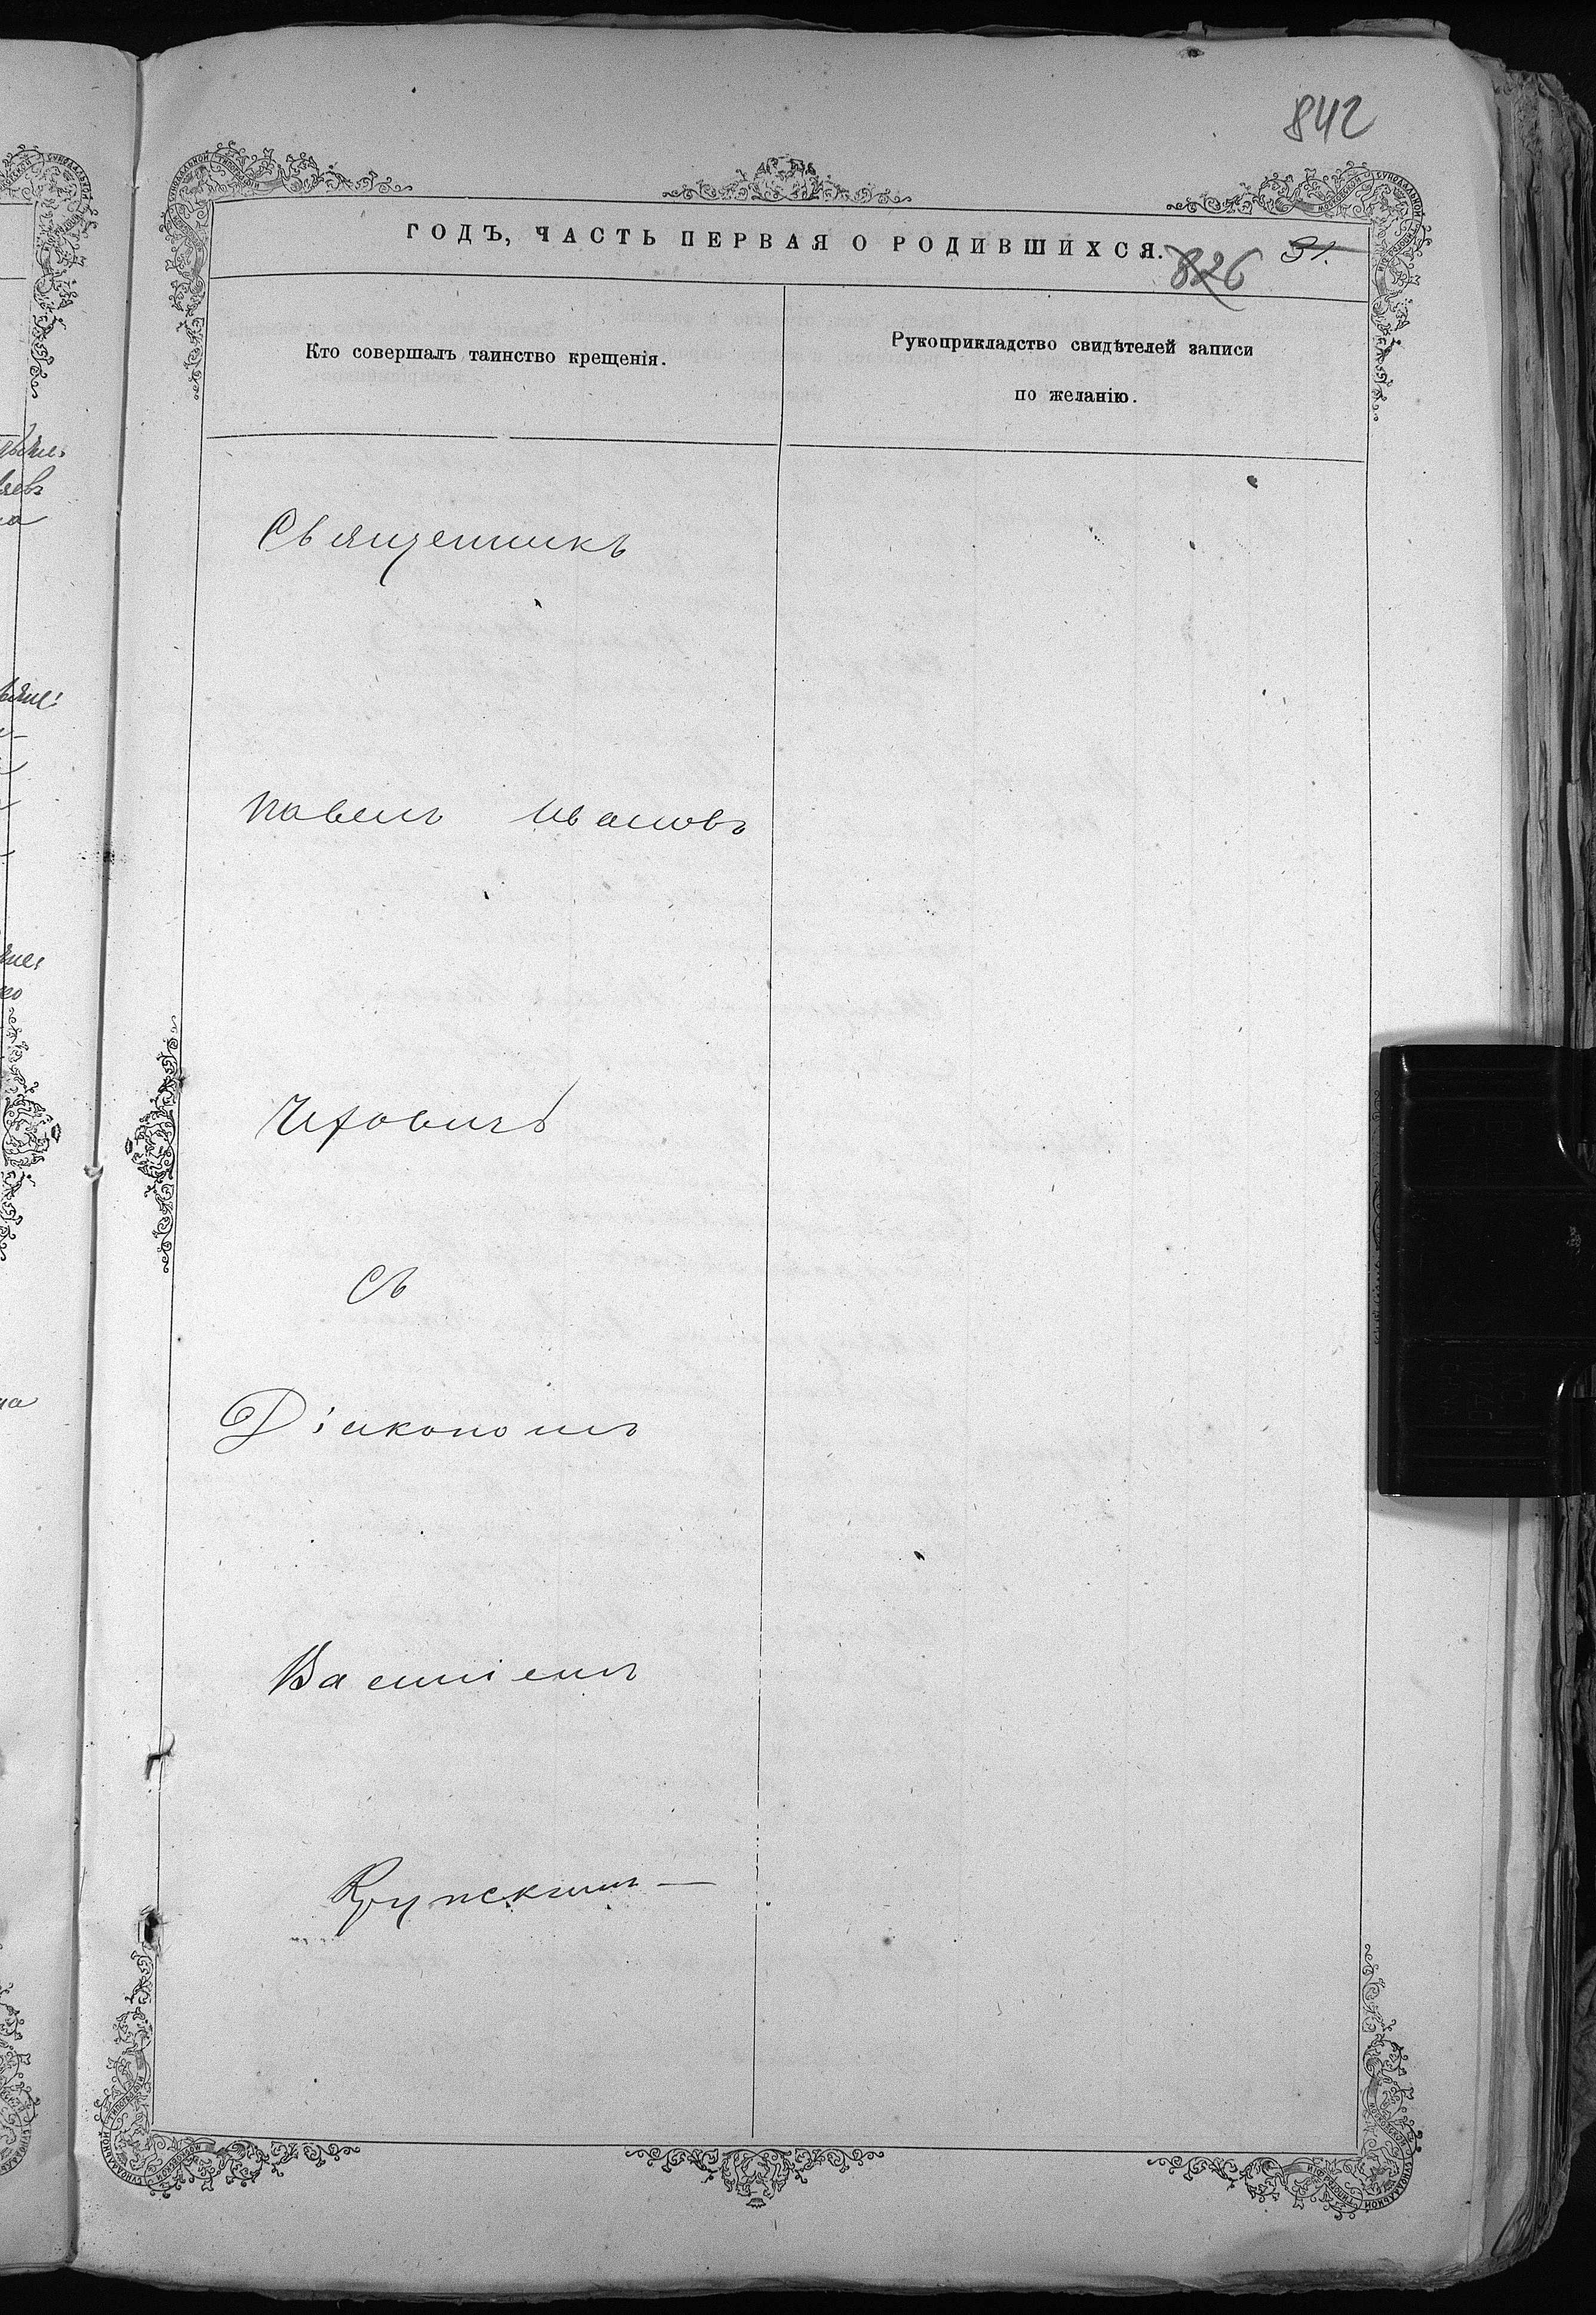 842
ГОДЪ, ЧАСТЬ ПЕРВАЯ О РОДИВШИХСЯ.
826 31.
Кто совершалъ таинство крещенія.
Рукоприкладство свидѣтелей записи
по желанію.
Священникъ
Павелъ Ивановъ
Съ
Діакономъ
Василіемъ
Крупскимъ —